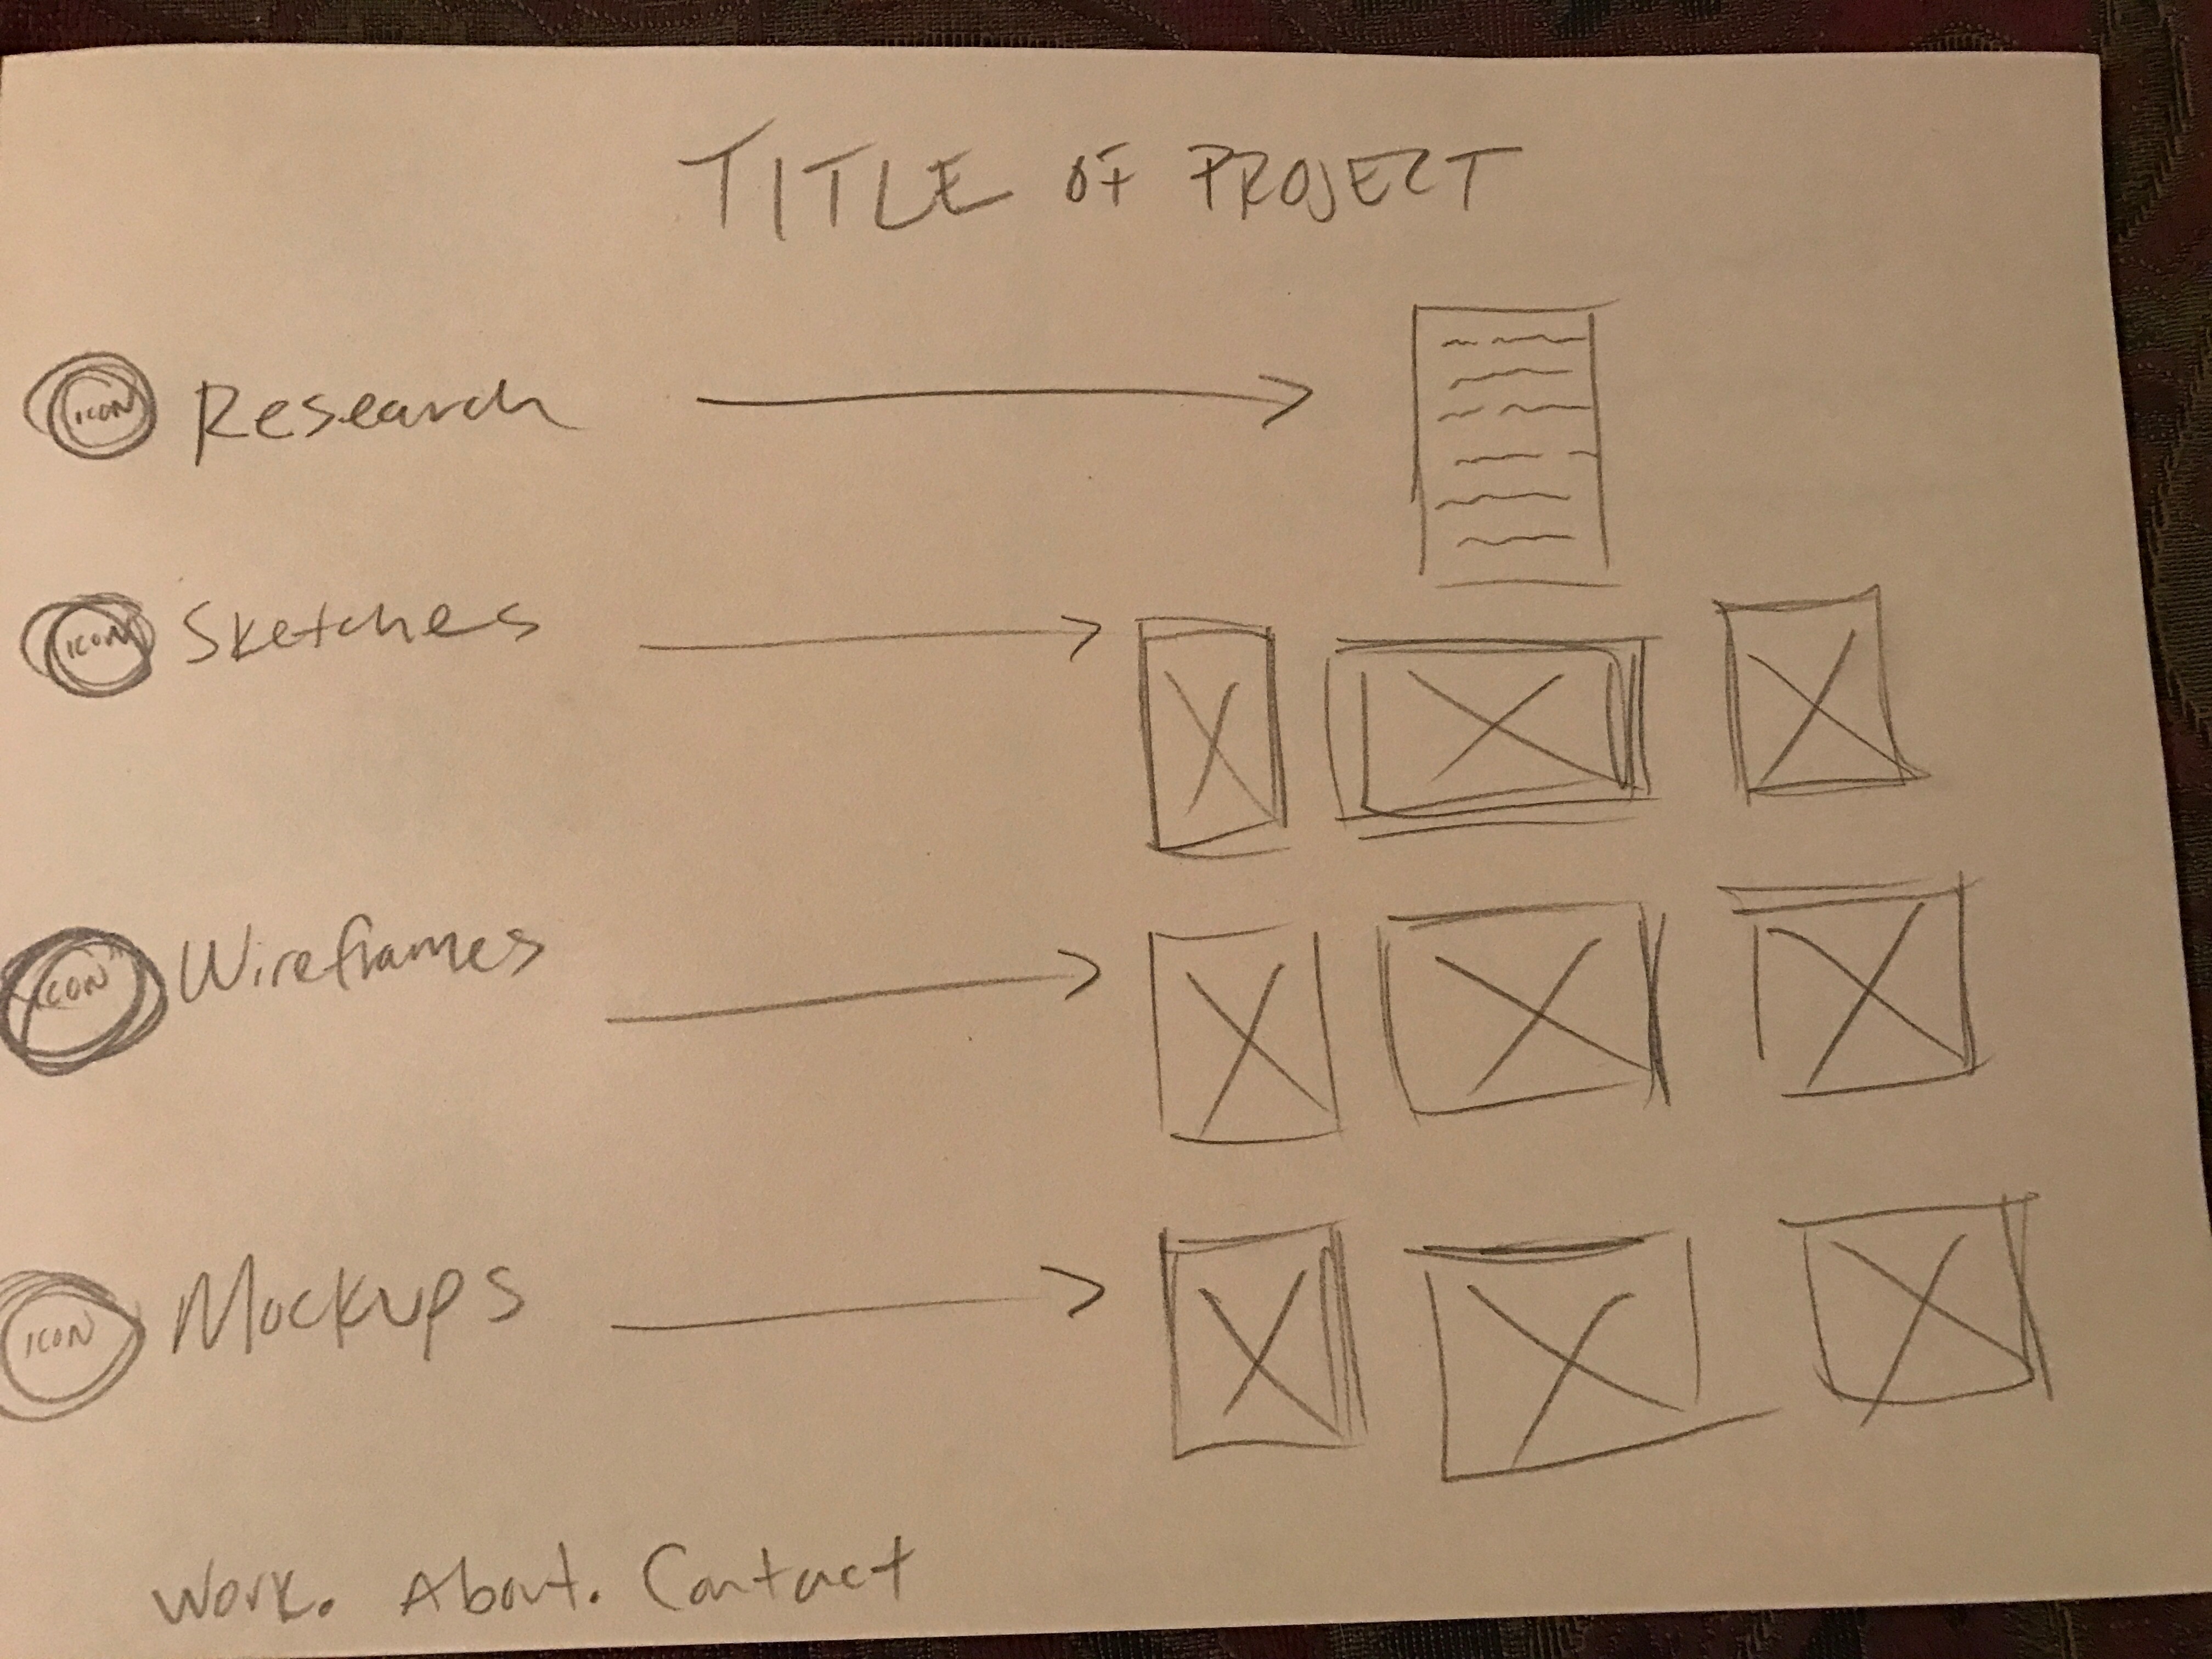 TITLE OF PROJECT
ICON Research
ICON Sketches
ICON Wireframes
ICON Mockups
Work. About. Contact